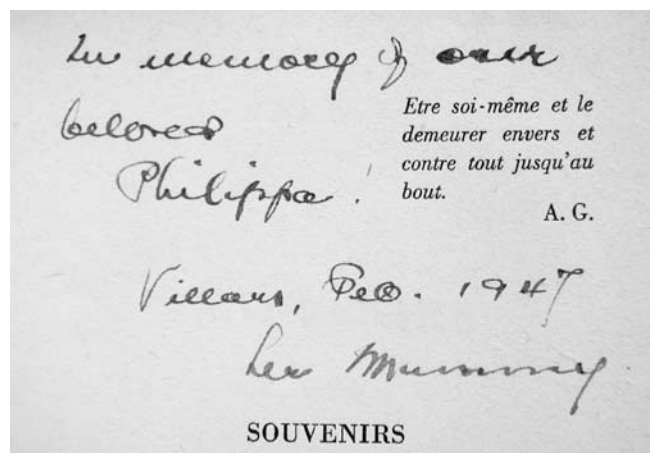 In memory of our
beloved
Philippa!
Etre soi-même et le
demeurer envers et
contre tout jusqu'au
bout.
A. G.
Villars, Feb. 1947
her Mummy
SOUVENIRS